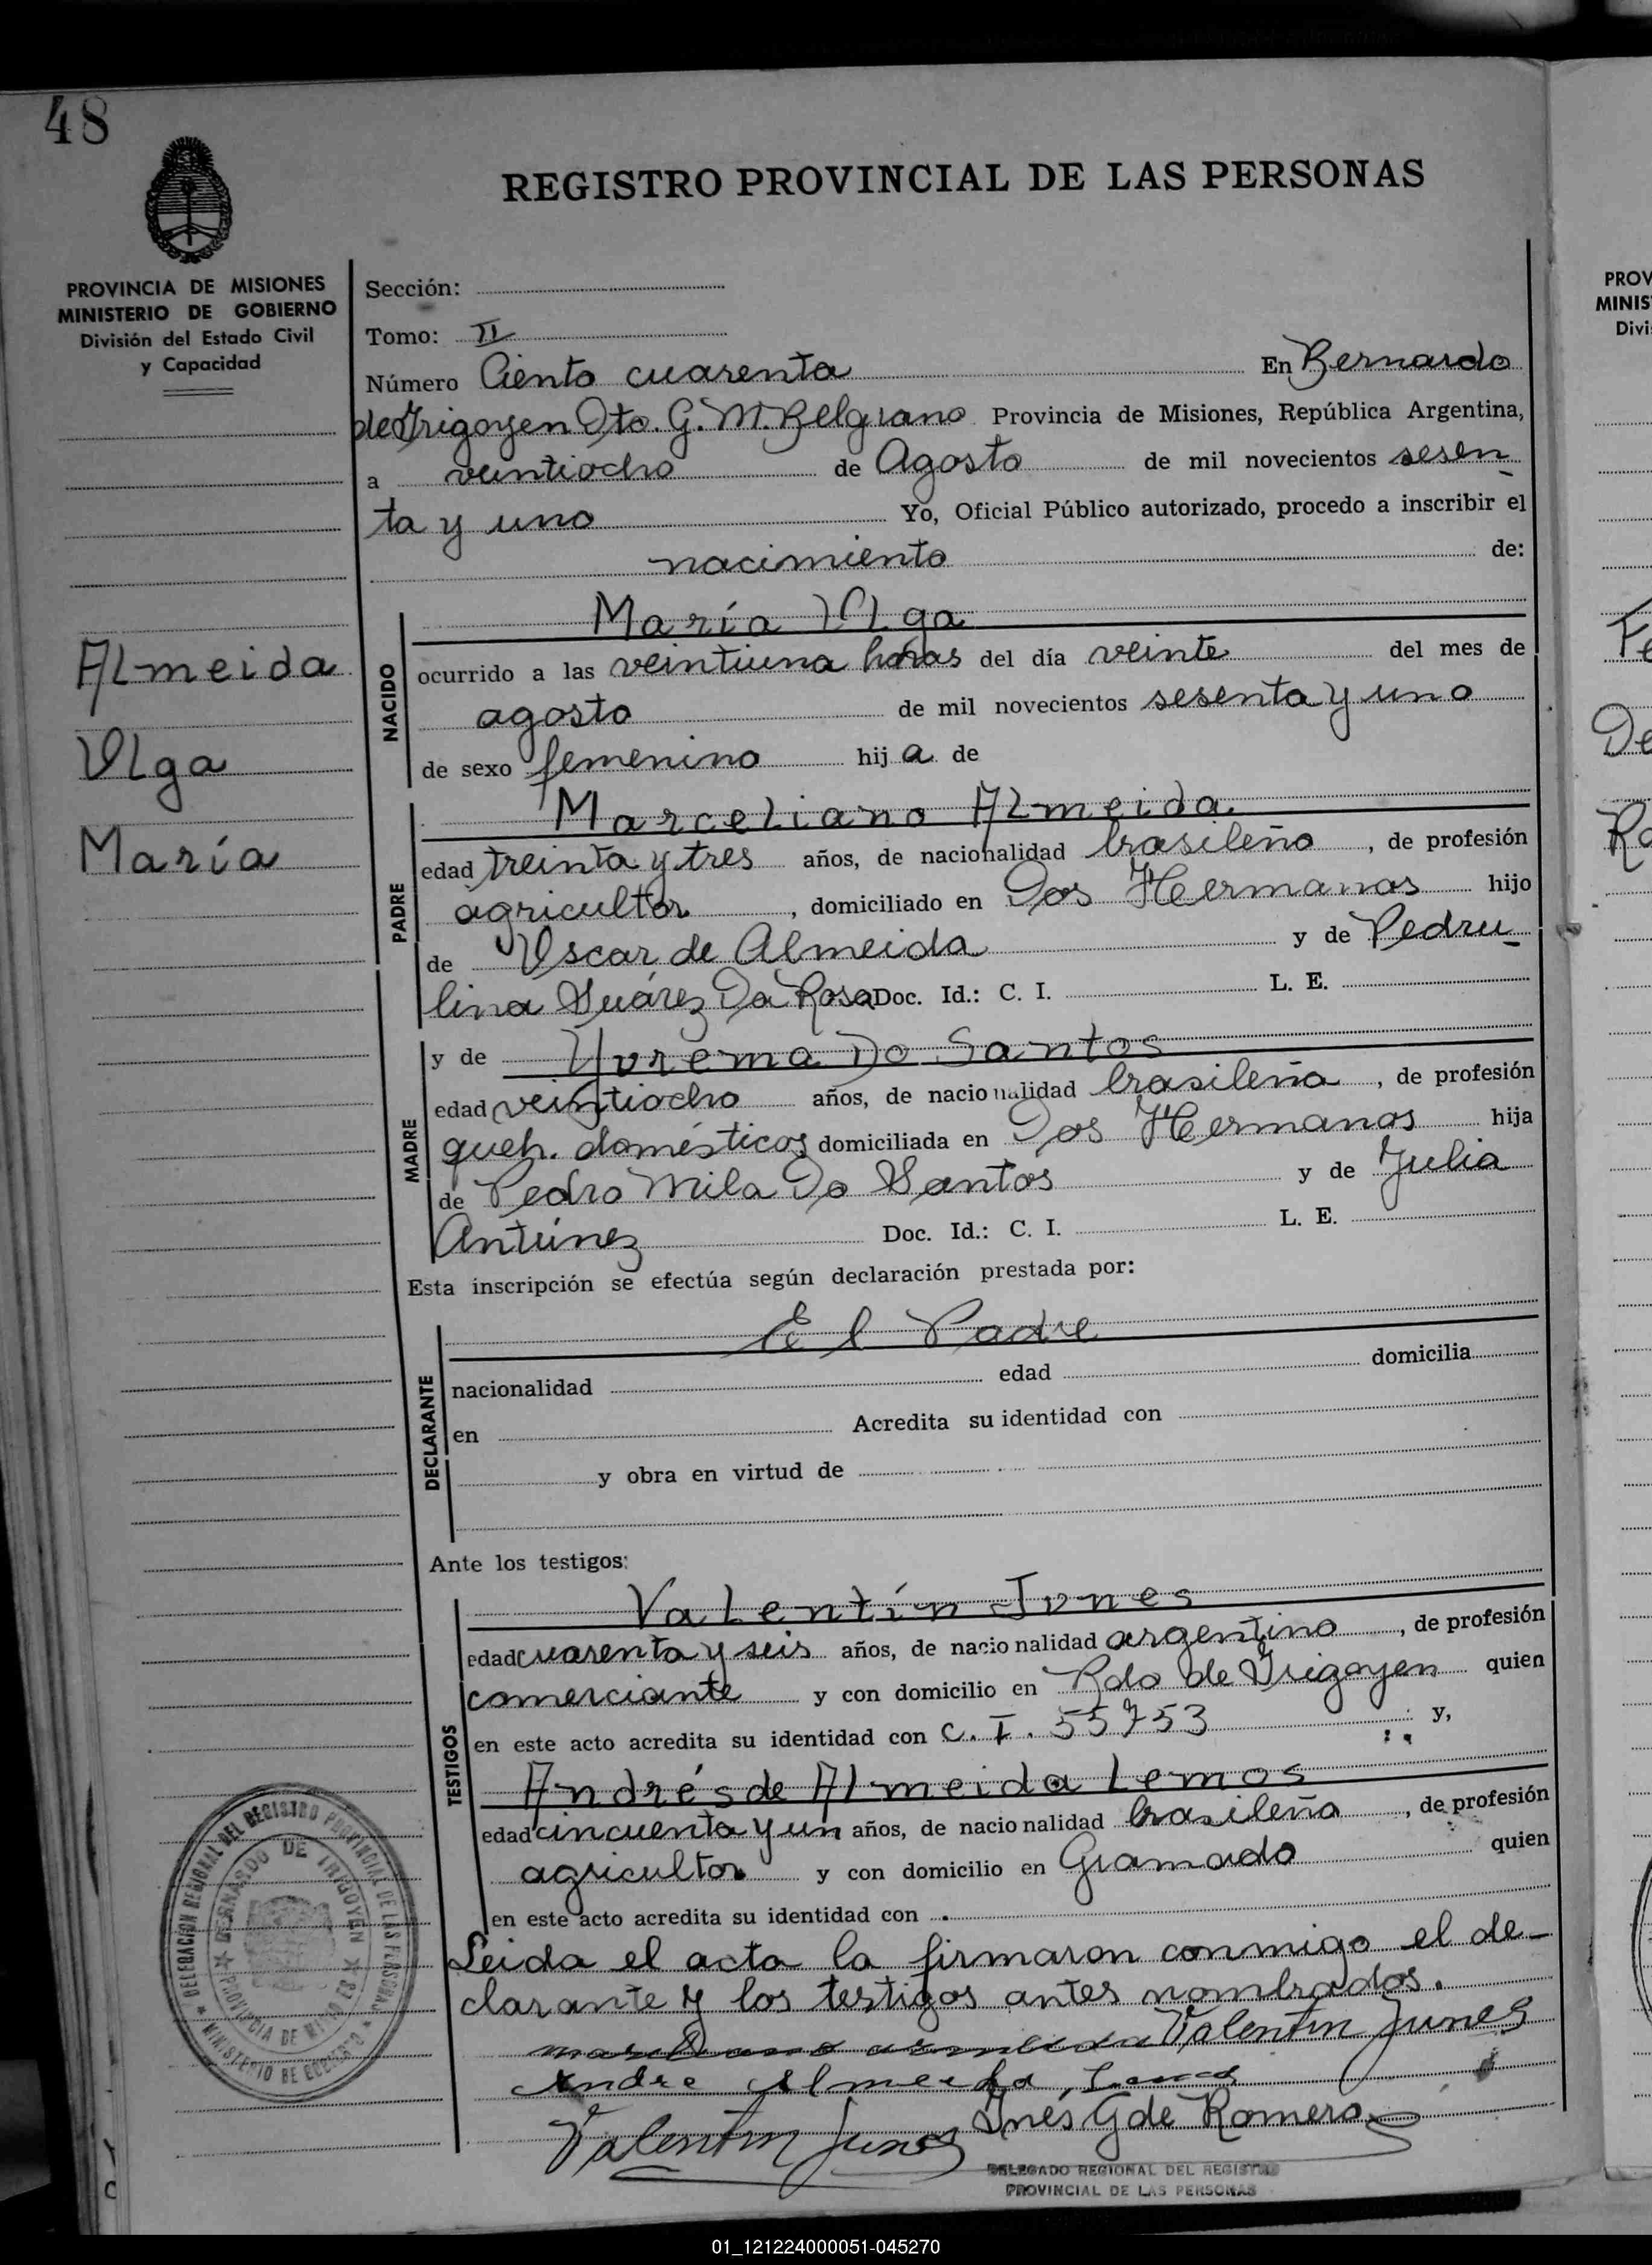 48
REGISTRO PROVINCIAL DE LAS PERSONAS
PROVINCIA DE MISIONES
MINISTERIO DE GOBIERNO
División del Estado Civil
y Capacidad
Almeida
Olga
María
Sección:
Tomo: II
Número Ciento cuarenta En Bernardo
de Irigoyen Dto. G. M. Belgrano Provincia de Misiones, República Argentina,
a veintiocho de Agosto de mil novecientos sesen-
ta y uno Yo, Oficial Público autorizado, procedo a inscribir el
nacimiento de:
NACIDO
María Olga
ocurrido a las veintiuna horas del día veinte del mes de
agosto de mil novecientos sesenta y uno
de sexo femenino hija de
PADRE
Marceliano Almeida
edad treinta y tres años, de nacionalidad brasileña, de profesión
agricultor, domiciliado en Dos Hermanas hijo
de Oscar de Almeida y de Pedru-
lina Suárez Da Rosa Doc. Id.: C. I. L. E.
MADRE
y de Yurema Do Santos
edad veintiocho años, de nacionalidad brasileña, de profesión
queh. domésticos domiciliada en Dos Hermanas hija
de Pedro Mila Do Santos y de Julia
Antúnez Doc. Id.: C. I. L. E.
Esta inscripción se efectúa según declaración prestada por:
DECLARANTE
El Padre
nacionalidad edad domicilia
en Acredita su identidad con
y obra en virtud de
Ante los testigos:
TESTIGOS
Valentín Junes
edad cuarenta y seis años, de nacionalidad argentino, de profesión
comerciante y con domicilio en Bdo de Irigoyen quien
en este acto acredita su identidad con C. I. 55753 y,
Andrés de Almeida Lemos
edad cincuenta y un años, de nacionalidad brasileña, de profesión
agricultor y con domicilio en Gramado quien
en este acto acredita su identidad con
Leida el acta la firmaron conmigo el de-
clarante y los testigos antes nombrados.
Valentin Junes
Andre Almeida
Valentin Junes Inés G de Romero
DELEGADO REGIONAL DEL REGISTRO
PROVINCIAL DE LAS PERSONAS
DELEGACIÓN REGIONAL DEL REGISTRO PROVINCIAL DE LAS PERSONAS
MINISTERIO DE GOBIERNO
BERNARDO DE IRIGOYEN
PROVINCIA DE MISIONES
PROV
MINIS
Divi
01_121224000051-045270